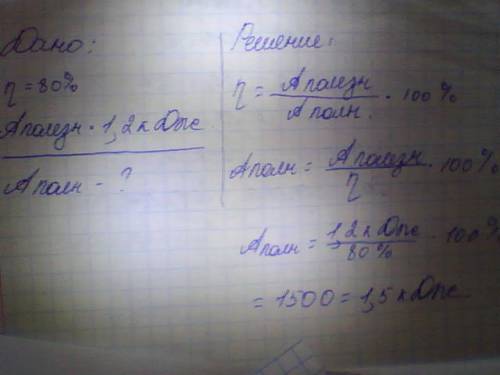 Дано:
η = 80%
Aполезн · 1,2 кДж
Aполн - ?
Решение:
η = Aполезн / Aполн. · 100%
Aполн = Aполезн / η · 100%
Aполн = 1,2 кДж / 80% · 100%
= 1500 = 1,5 кДж